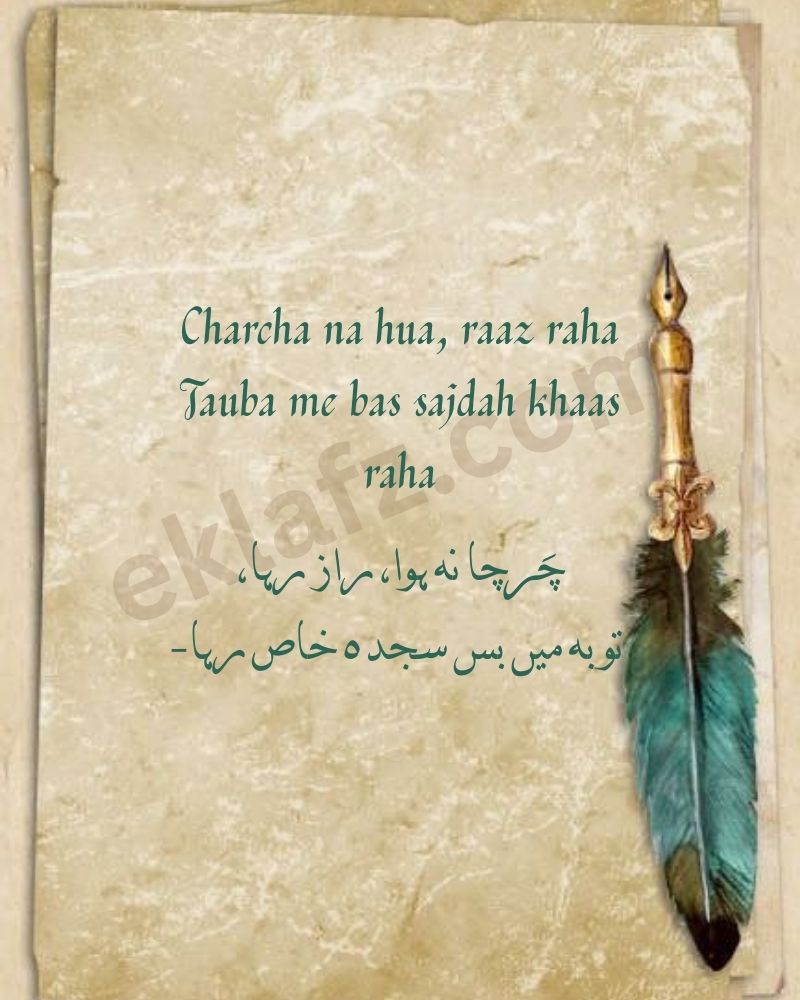 Charcha na hua, raaz raha
Tauba me bas sajdah khaas
raha
چَرچا نہ ہوا، راز رہا،
توبہ میں بس سجدہ خاص رہا-
eklafz.com